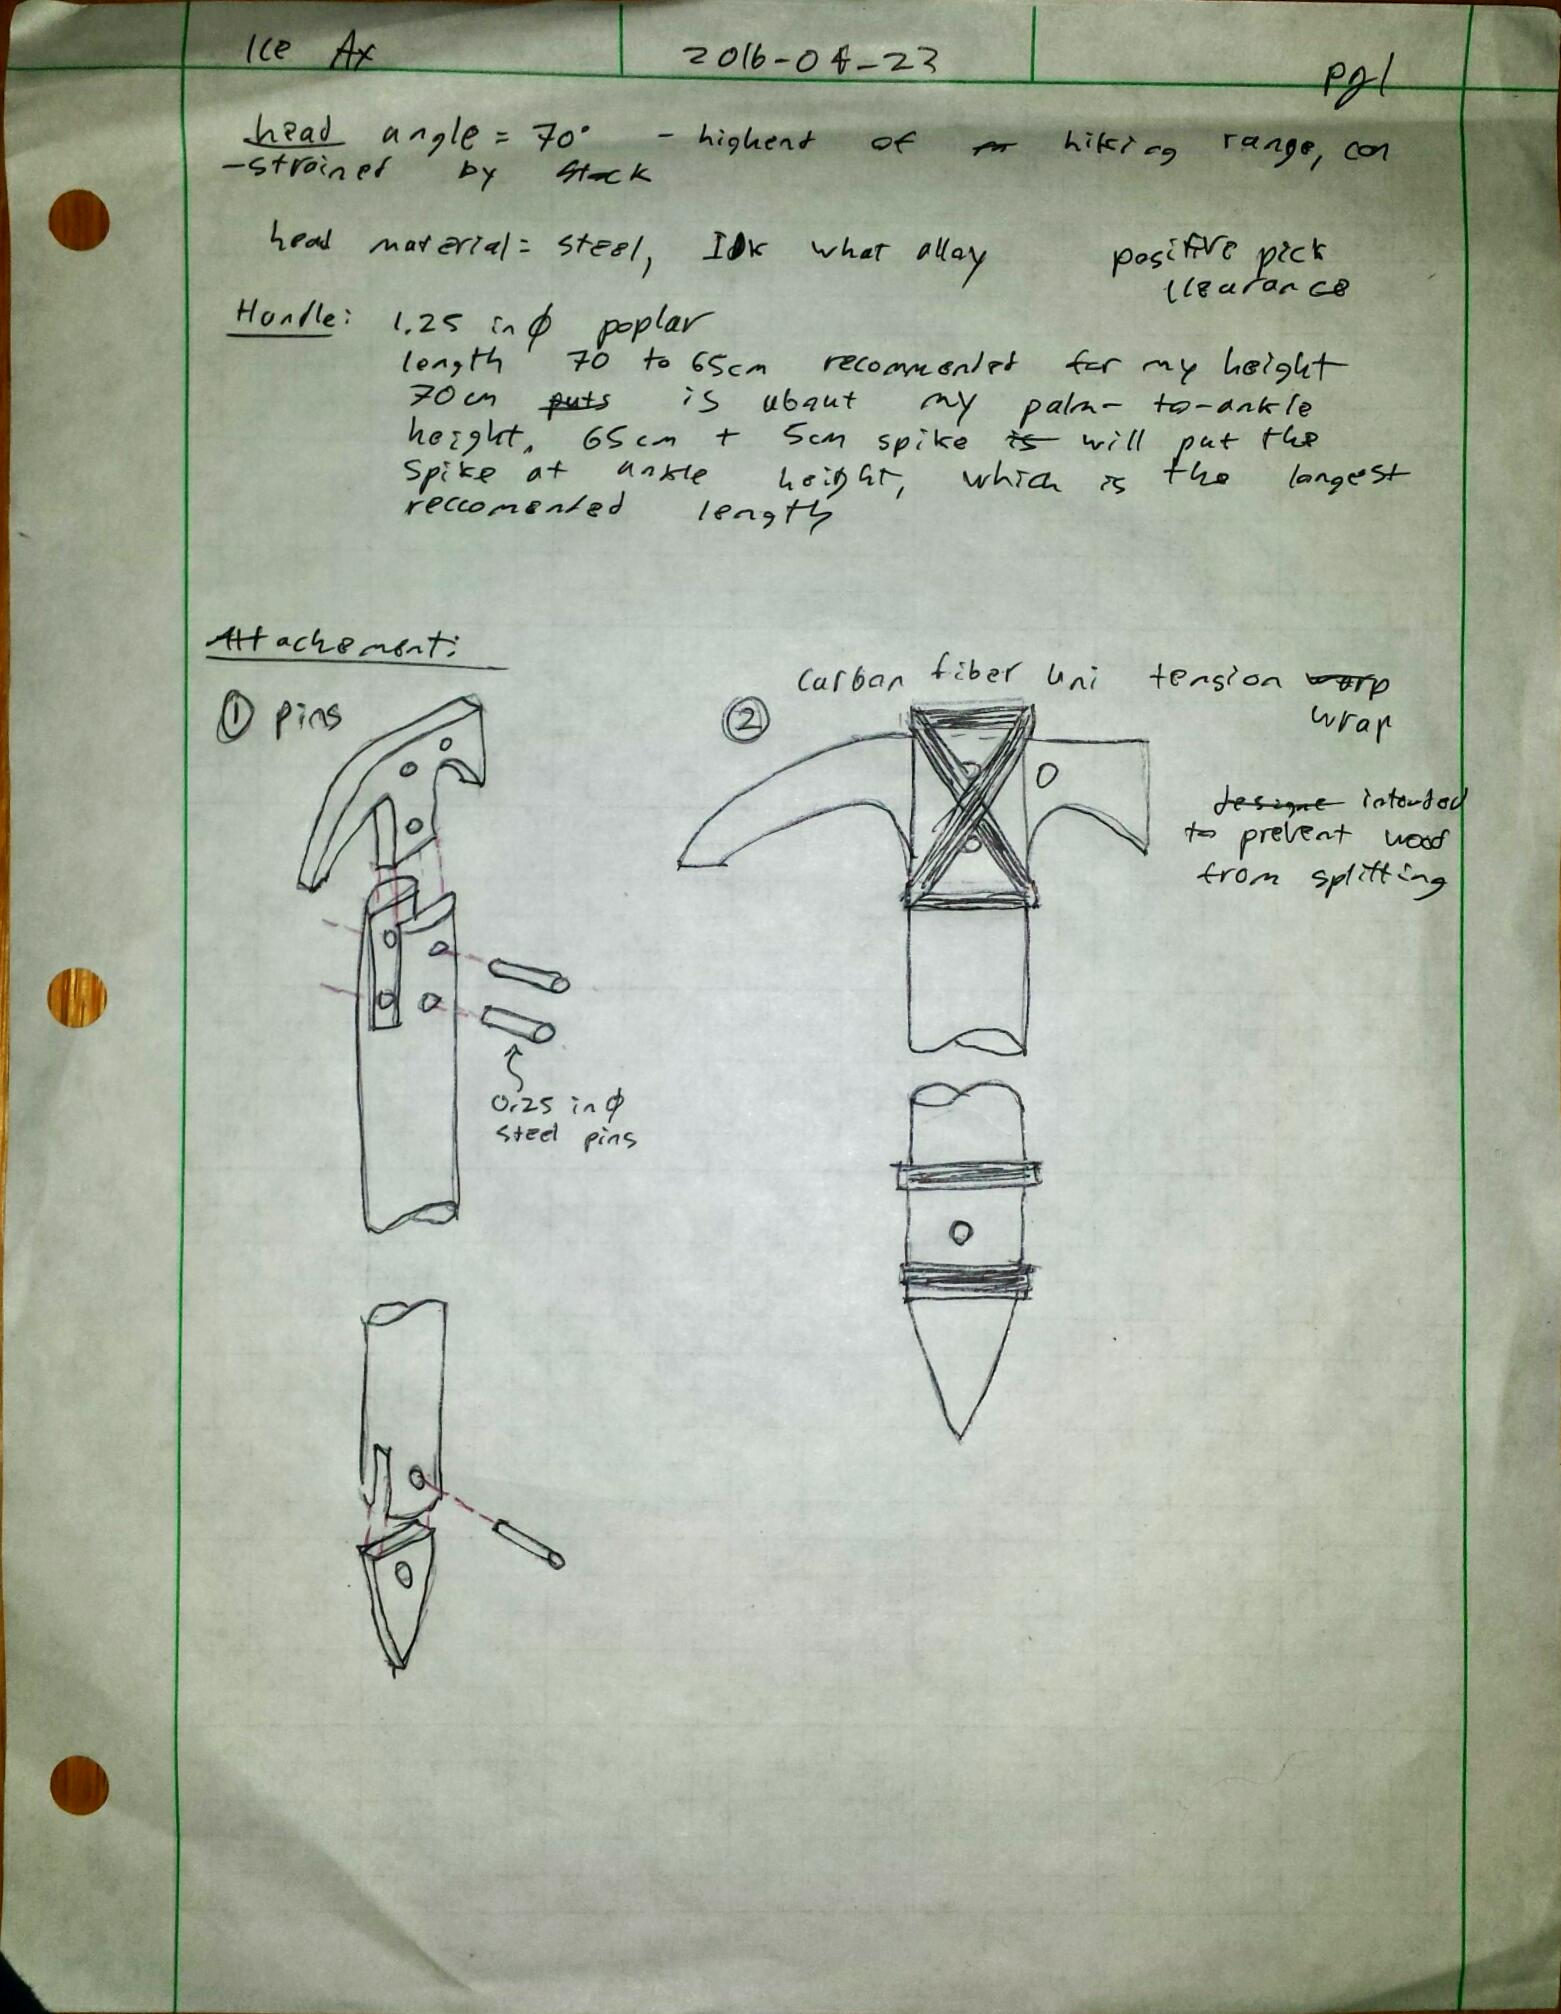 Ice Ax
2016-04-23
pg1
head angle = 70° - highend of hiking range, con
-strained by stock
head material = steel, Idk what alloy
positive pick
clearance
Handle: 1.25 in ϕ poplar
length 70 to 65cm recommented for my height
70cm puts is about my palm-to-ankle
height. 65cm + 5cm spike is will put the
spike at ankle height, which is the longest
reccomented length
Attachement:
① pins
0.25 in ϕ
steel pins
② Carbon fiber uni tension warp
wrap
designe intended
to prevent wood
from splitting